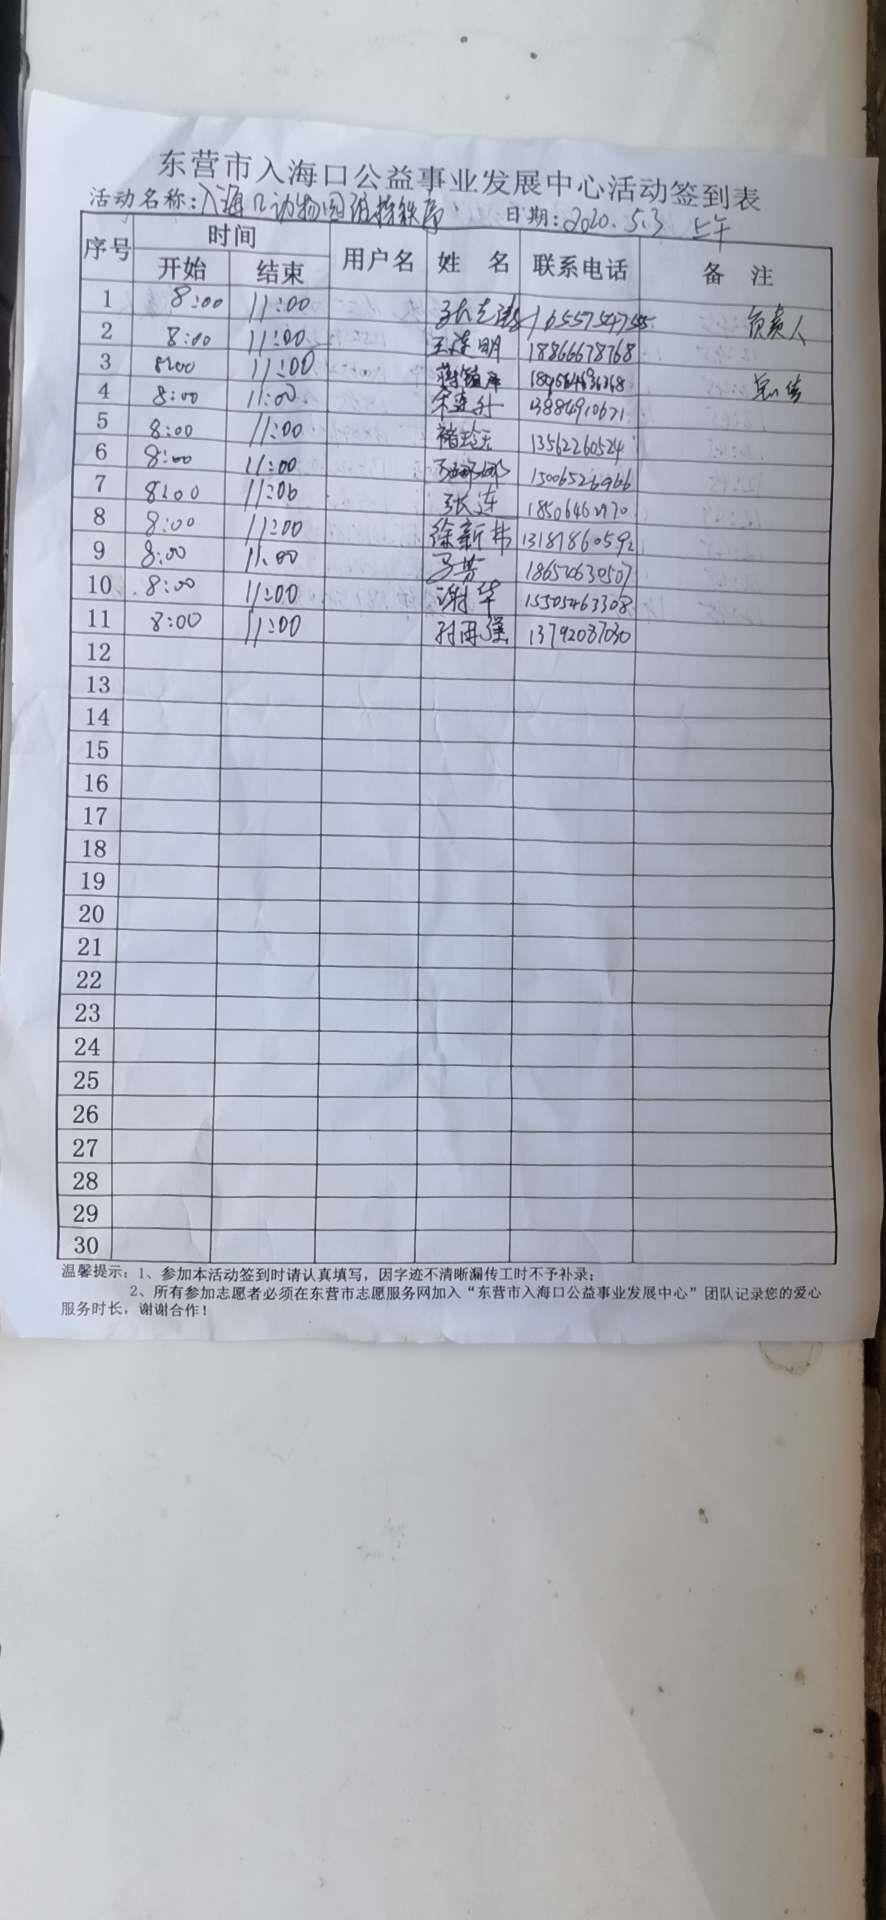 东营市入海口公益事业发展中心活动签到表
活动名称:入海口动物园维持秩序 日期:2020.5.3 上午
序号 时间 用户名 姓 名 联系电话 备 注
开始 结束
1 8:00 11:00 16557549755 负责人
2 8:00 11:00 王连明 18866678768
3 8:00 11:00
4 8:00 11:00 宋连升 13884910671
5 8:00 11:00 褚玲玉 13562260524
6 8:00 11:00 15065226966
7 8:00 11:00 张连 18506462970
8 8:00 11:00 徐新苹 13181860592
9 8:00 11:00 马芳 18654630507
10 8:00 11:00 谢华 15305463308
11 8:00 11:00 孙雨强 13792087030
12
13
14
15
16
17
18
19
20
21
22
23
24
25
26
27
28
29
30
温馨提示:1、参加本活动签到时请认真填写,因字迹不清晰漏传工时不予补录;
2、所有参加志愿者必须在东营市志愿服务网加入“东营市入海口公益事业发展中心”团队记录您的爱心
服务时长,谢谢合作!